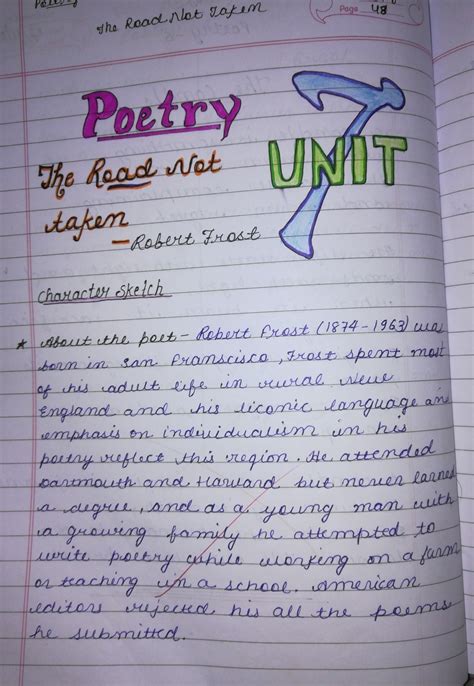 Poetry
The Road Not Taken
Page 48
Poetry
UNIT 7
The Road Not
taken
- Robert Frost
Character Sketch
* About the poet - Robert Frost (1874-1963) was
born in San Franscisco, Frost spent most
of his adult life in rural New
England and his liconic language an
emphasis on individualism in his
poetry reflect this region. He attended
Dartmouth and Harvard but never earned
a degree, and as a young man with
a growing family he attempted to
write poetry while working on a farm
or teaching in a school. American
editors rejected his all the poems
he submitted.